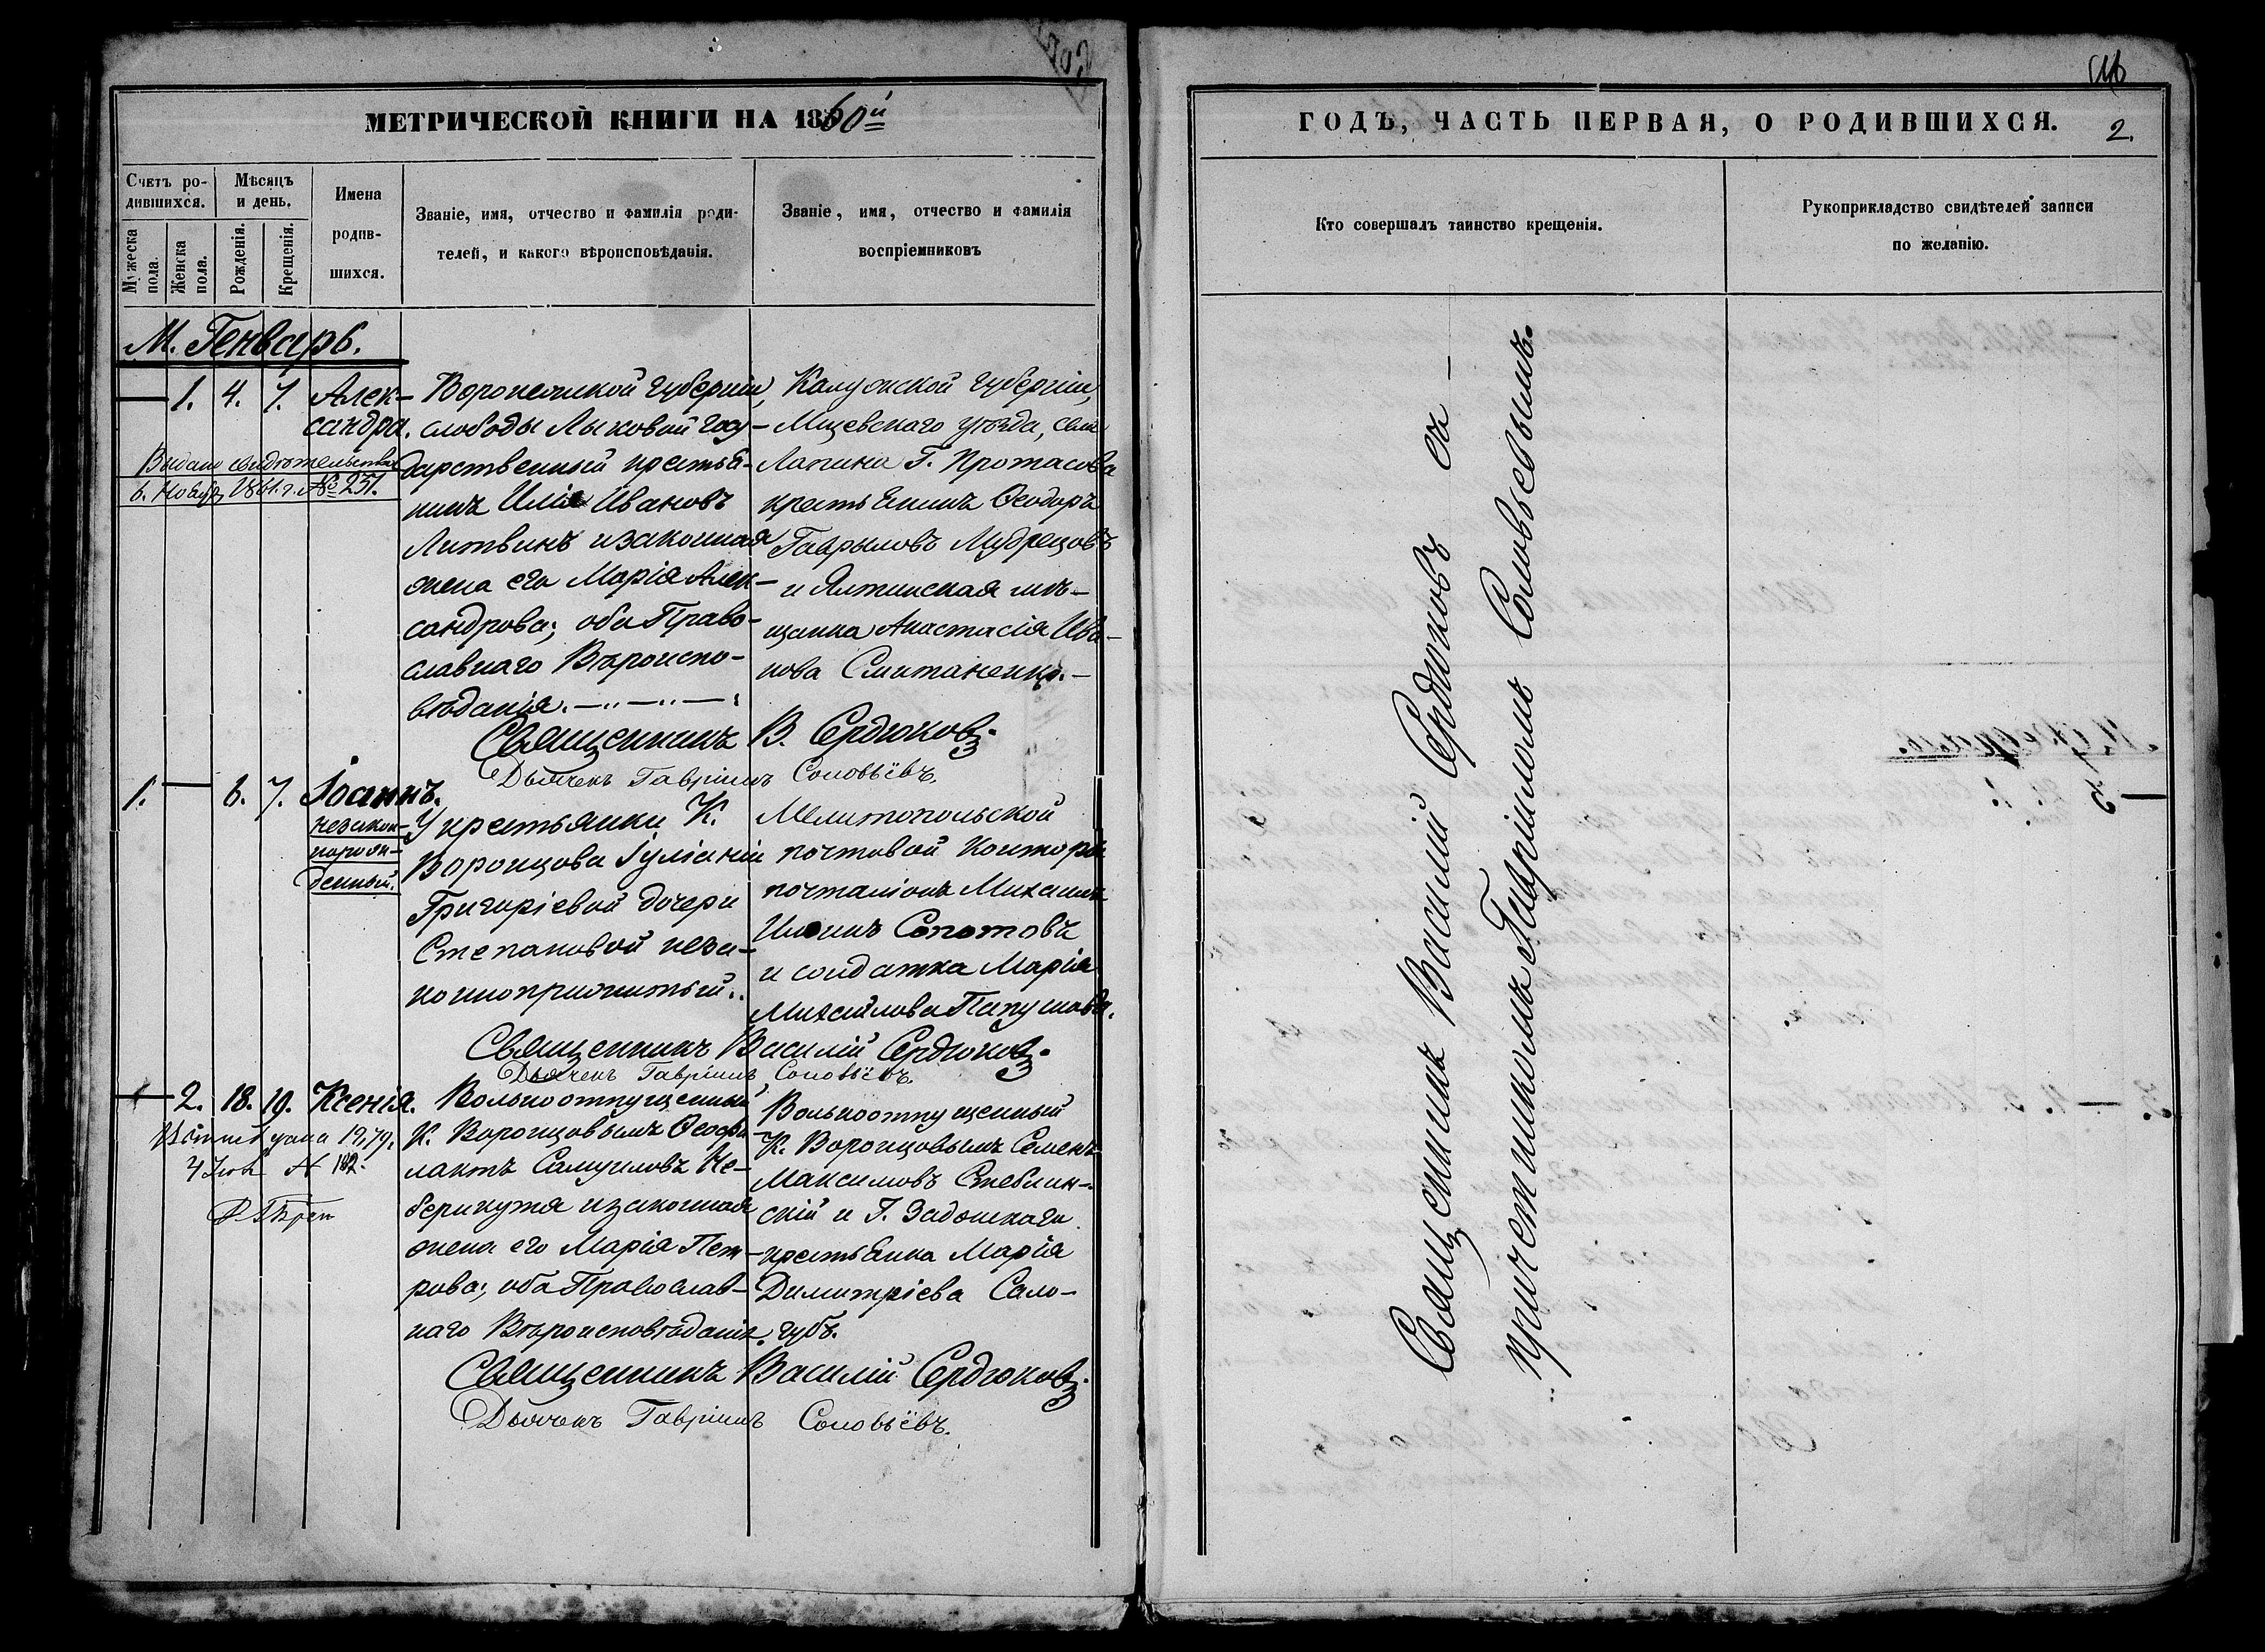 МЕТРИЧЕСКОЙ КНИГИ НА 1860й
Счетъ ро-
дившихся.
Мужеска пола.
Женска пола.
Мѣсяцъ
и день.
Рожденія.
Крещенія.
Имена
родив-
шихся.
Званіе, имя, отчество и фамилія роди-
телей, и какого вѣроисповѣданія.
Званіе, имя, отчество и фамилія
воспріемниковъ
М. Генварь.
— 1. 4. 7. Алек-
сандра.
Выдано свидѣтельство
6. Ноябр. 1861. г. № 251.
Воронежской губерніи,
слободы Лыковой госу-
дарственный крестья-
нинъ Илія Ивановъ
Литвинъ и законная
жена его Марія Алек-
сандрова; оба Право-
славнаго Вѣроиспо-
вѣданія.
Калужской губерніи,
Мщевскаго уѣзда, села
Лапина Г. Протасова
крестьянинъ Ѳеодоръ
Гаврыловъ Мудрецовъ
и Ялтинская мѣ-
щанка Анастасія Ива-
нова Смитаненко. —
Священникъ В. Сердюковъ.
Дьячекъ Гавріилъ Соловьёвъ.
1. — 6. 7. Іоаннъ.
незакон-
норож-
денный.
У крестьянки К.
Воронцова Іуліаніи
Григоріевой дочери
Степановой неза-
коноприжитый.
Мелитопольской
почтовой конторы
почталіонъ Михаилъ
Сопотовъ
и солдатка Марія
Михайлова Папушова.
Священникъ Василій Сердюковъ.
Дьячекъ Гавріилъ Соловьёвъ.
— 2. 18. 19. Ксенія.
1979.
№ 182.
Вольноотпущенный
К. Воронцовымъ Ѳеофи-
лактъ Самуиловъ Не-
берикутя и законная
жена его Марія Пет-
рова; оба Православ-
наго Вѣроисповѣданія.
Вольноотпущенный
К. Воронцовымъ Семенъ
Максимовъ Стеблин-
скій и Г. Задонскаго
крестьянка Марія
Димитріева Сало-
губъ.
Священникъ Василій Сердюковъ.
Дьячекъ Гавріилъ Соловьёвъ.
ГОДЪ, ЧАСТЬ ПЕРВАЯ, О РОДИВШИХСЯ.
2.
Кто совершалъ таинство крещенія.
Рукоприкладство свидѣтелей записи
по желанію.
Священникъ Василій Сердюковъ съ —
причетникомъ Гавріиломъ Соловьевымъ.